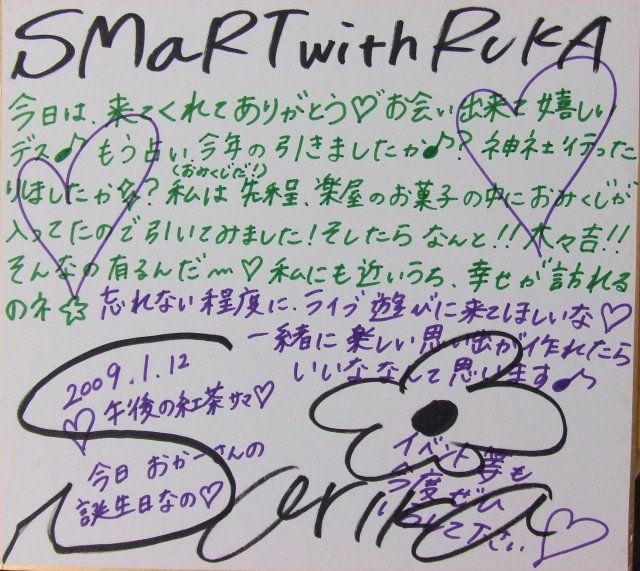 SMaRT with RUKA
今日は、来てくれてありがとう♡お会い出来て嬉しい
デス♪もう占い、今年の引きましたか♪?神社行った
(おみくじだ!)
りしましたか?私は先程、楽屋のお菓子の中におみくじが
入ってたので引いてみました!そしたらなんと!!大々吉!!
そんなの有るんだ〜♡私にも近いうち、幸せが訪れる
のネ☆忘れない程度に、ライブ遊びに来てほしいな♡
一緒に楽しい思い出が作れたら
いいななんて思います♪
2009.1.12
♡午後の紅茶サマ♡
今日おかーさんの
誕生日なの♡
イベント等も
今度ぜひ
下さい♡